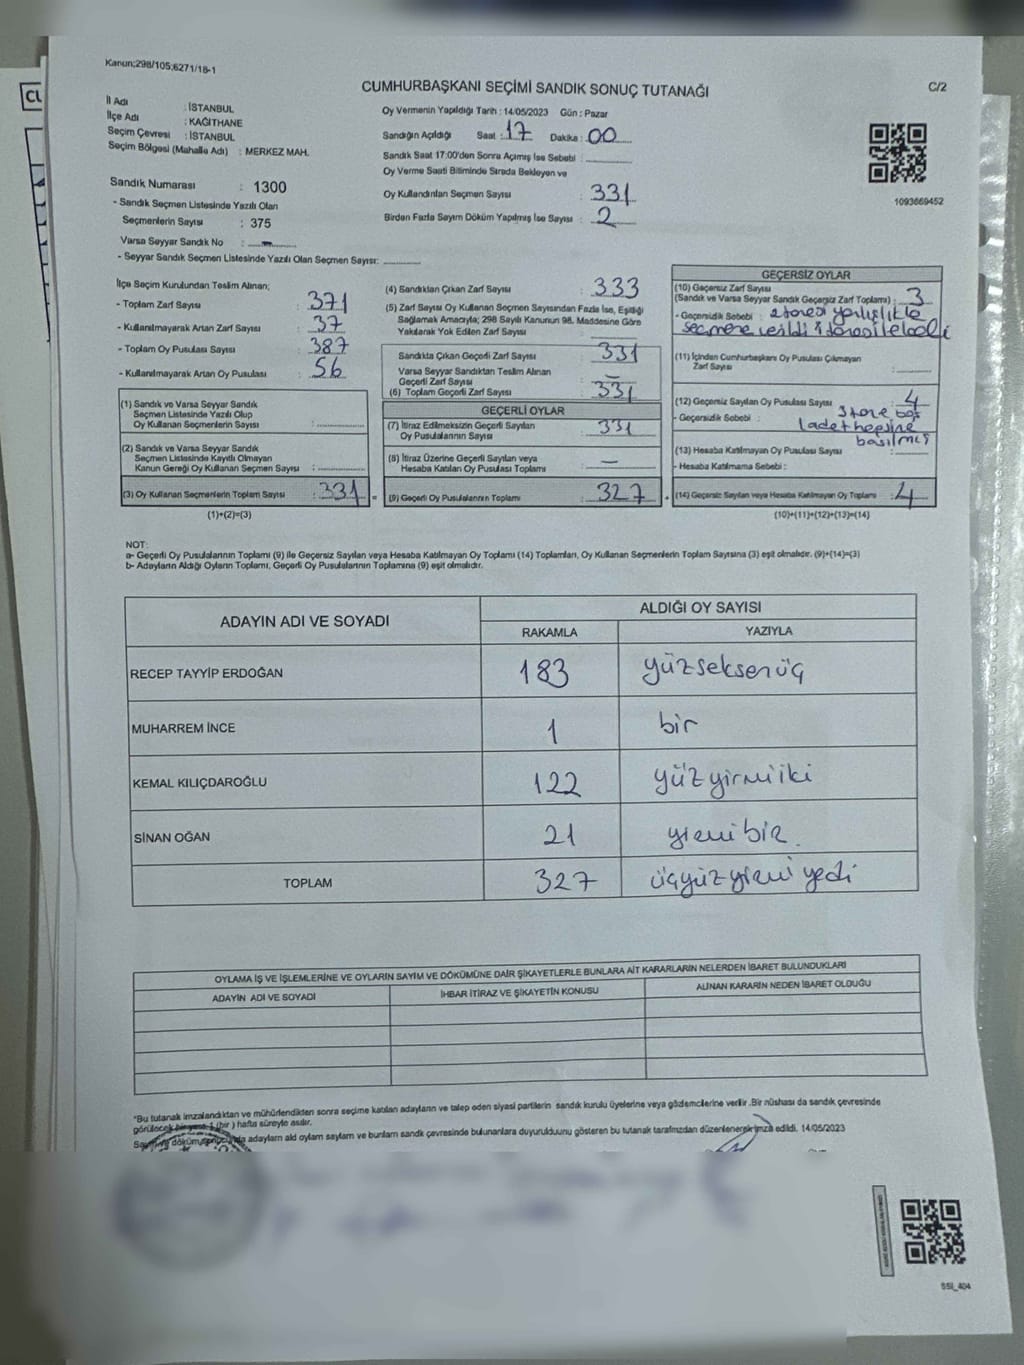 Kanun;298/105;6271/18-1
CUMHURBAŞKANI SEÇİMİ SANDIK SONUÇ TUTANAĞI
C/2
İl Adı : İSTANBUL
İlçe Adı : KAĞITHANE
Seçim Çevresi : İSTANBUL
Seçim Bölgesi (Mahalle Adı) : MERKEZ MAH.
Sandık Numarası : 1300
- Sandık Seçmen Listesinde Yazılı Olan
Seçmenlerin Sayısı : 375
Varsa Seyyar Sandık No :
- Seyyar Sandık Seçmen Listesinde Yazılı Olan Seçmen Sayısı:
Oy Vermenin Yapıldığı Tarih : 14/05/2023 Gün : Pazar
Sandığın Açıldığı Saat : 17 Dakika : 00
Sandık Saat 17:00'den Sonra Açılmış İse Sebebi :
Oy Verme Saati Bitiminde Sırada Bekleyen ve
Oy Kullandırılan Seçmen Sayısı : 331
Birden Fazla Sayım Döküm Yapılmış İse Sayısı : 2
1093669452
İlçe Seçim Kurulundan Teslim Alınan;
- Toplam Zarf Sayısı : 371
- Kullanılmayarak Artan Zarf Sayısı : 37
- Toplam Oy Pusulası Sayısı : 387
- Kullanılmayarak Artan Oy Pusulası : 56
(1) Sandık ve Varsa Seyyar Sandık
Seçmen Listesinde Yazılı Olup
Oy Kullanan Seçmenlerin Sayısı :
(2) Sandık ve Varsa Seyyar Sandık
Seçmen Listesinde Kayıtlı Olmayan
Kanun Gereği Oy Kullanan Seçmen Sayısı :
(3) Oy Kullanan Seçmenlerin Toplam Sayısı : 331 =
(1)+(2)=(3)
(4) Sandıktan Çıkan Zarf Sayısı : 333
(5) Zarf Sayısı Oy Kullanan Seçmen Sayısından Fazla İse, Eşitliği
Sağlamak Amacıyla; 298 Sayılı Kanunun 98. Maddesine Göre
Yakılarak Yok Edilen Zarf Sayısı :
Sandıkta Çıkan Geçerli Zarf Sayısı : 331
Varsa Seyyar Sandıktan Teslim Alınan
Geçerli Zarf Sayısı : —
(6) Toplam Geçerli Zarf Sayısı : 331
GEÇERLİ OYLAR
(7) İtiraz Edilmeksizin Geçerli Sayılan
Oy Pusulalarının Sayısı : 331
(8) İtiraz Üzerine Geçerli Sayılan veya
Hesaba Katılan Oy Pusulası Toplamı : —
(9) Geçerli Oy Pusulalarının Toplamı : 327 +
GEÇERSİZ OYLAR
(10) Geçersiz Zarf Sayısı
(Sandık ve Varsa Seyyar Sandık Geçersiz Zarf Toplamı) : 3
- Geçersizlik Sebebi : yanlışlıkla
seçmene verildi
(11) İçinden Cumhurbaşkanı Oy Pusulası Çıkmayan
Zarf Sayısı :
(12) Geçersiz Sayılan Oy Pusulası Sayısı : 4
- Geçersizlik Sebebi : boş
1 adet hepsine
basılmış
(13) Hesaba Katılmayan Oy Pusulası Sayısı :
- Hesaba Katılmama Sebebi :
(14) Geçersiz Sayılan veya Hesaba Katılmayan Oy Toplamı : 4
(10)+(11)+(12)+(13)=(14)
NOT:
a- Geçerli Oy Pusulalarının Toplamı (9) ile Geçersiz Sayılan veya Hesaba Katılmayan Oy Toplamı (14) Toplamları, Oy Kullanan Seçmenlerin Toplam Sayısına (3) eşit olmalıdır. (9)+(14)=(3)
b- Adayların Aldığı Oyların Toplamı, Geçerli Oy Pusulalarının Toplamına (9) eşit olmalıdır.
ADAYIN ADI VE SOYADI
ALDIĞI OY SAYISI
RAKAMLA YAZIYLA
RECEP TAYYİP ERDOĞAN 183 yüzseksenüç
MUHARREM İNCE 1 bir
KEMAL KILIÇDAROĞLU 122 yüzyirmiiki
SİNAN OĞAN 21 yirmibir
TOPLAM 327 üçyüzyirmi yedi
OYLAMA İŞ VE İŞLEMLERİNE VE OYLARIN SAYIM VE DÖKÜMÜNE DAİR ŞİKAYETLERLE BUNLARA AİT KARARLARIN NELERDEN İBARET BULUNDUKLARI
ADAYIN ADI VE SOYADI İHBAR İTİRAZ VE ŞİKAYETİN KONUSU ALINAN KARARIN NEDEN İBARET OLDUĞU
*Bu tutanak imzalandıktan ve mühürlendikten sonra seçime katılan adayların ve talep eden siyasi partilerin sandık kurulu üyelerine veya gözlemcilerine verilir. Bir nüshası da sandık çevresinde
görülecek bir yere 1 (bir) hafta süreyle asılır.
Sayım ve döküm sonucunda adayların aldı oyların sayıların ve bunların sandık çevresinde bulunanlara duyurulduğunu gösteren bu tutanak tarafımızdan düzenlenerek imza edildi. 14/05/2023
SSI_404